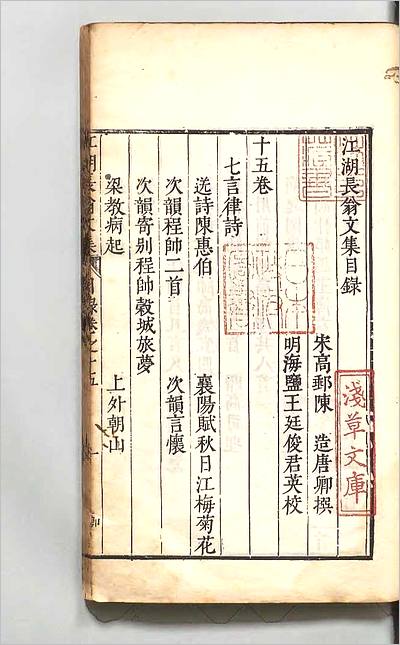 江湖長翁文集目録
宋高郵陳　造唐卿撰
明海鹽王廷俊君英校
十五卷
七言律詩
送詩陳惠伯　襄陽賦秋日江梅菊花
次韻程帥二首　次韻言懷
次韻寄别程帥榖城旅夢
梁教病起　上外朝山
江湖長翁文集　目錄卷之十五
淺草文庫